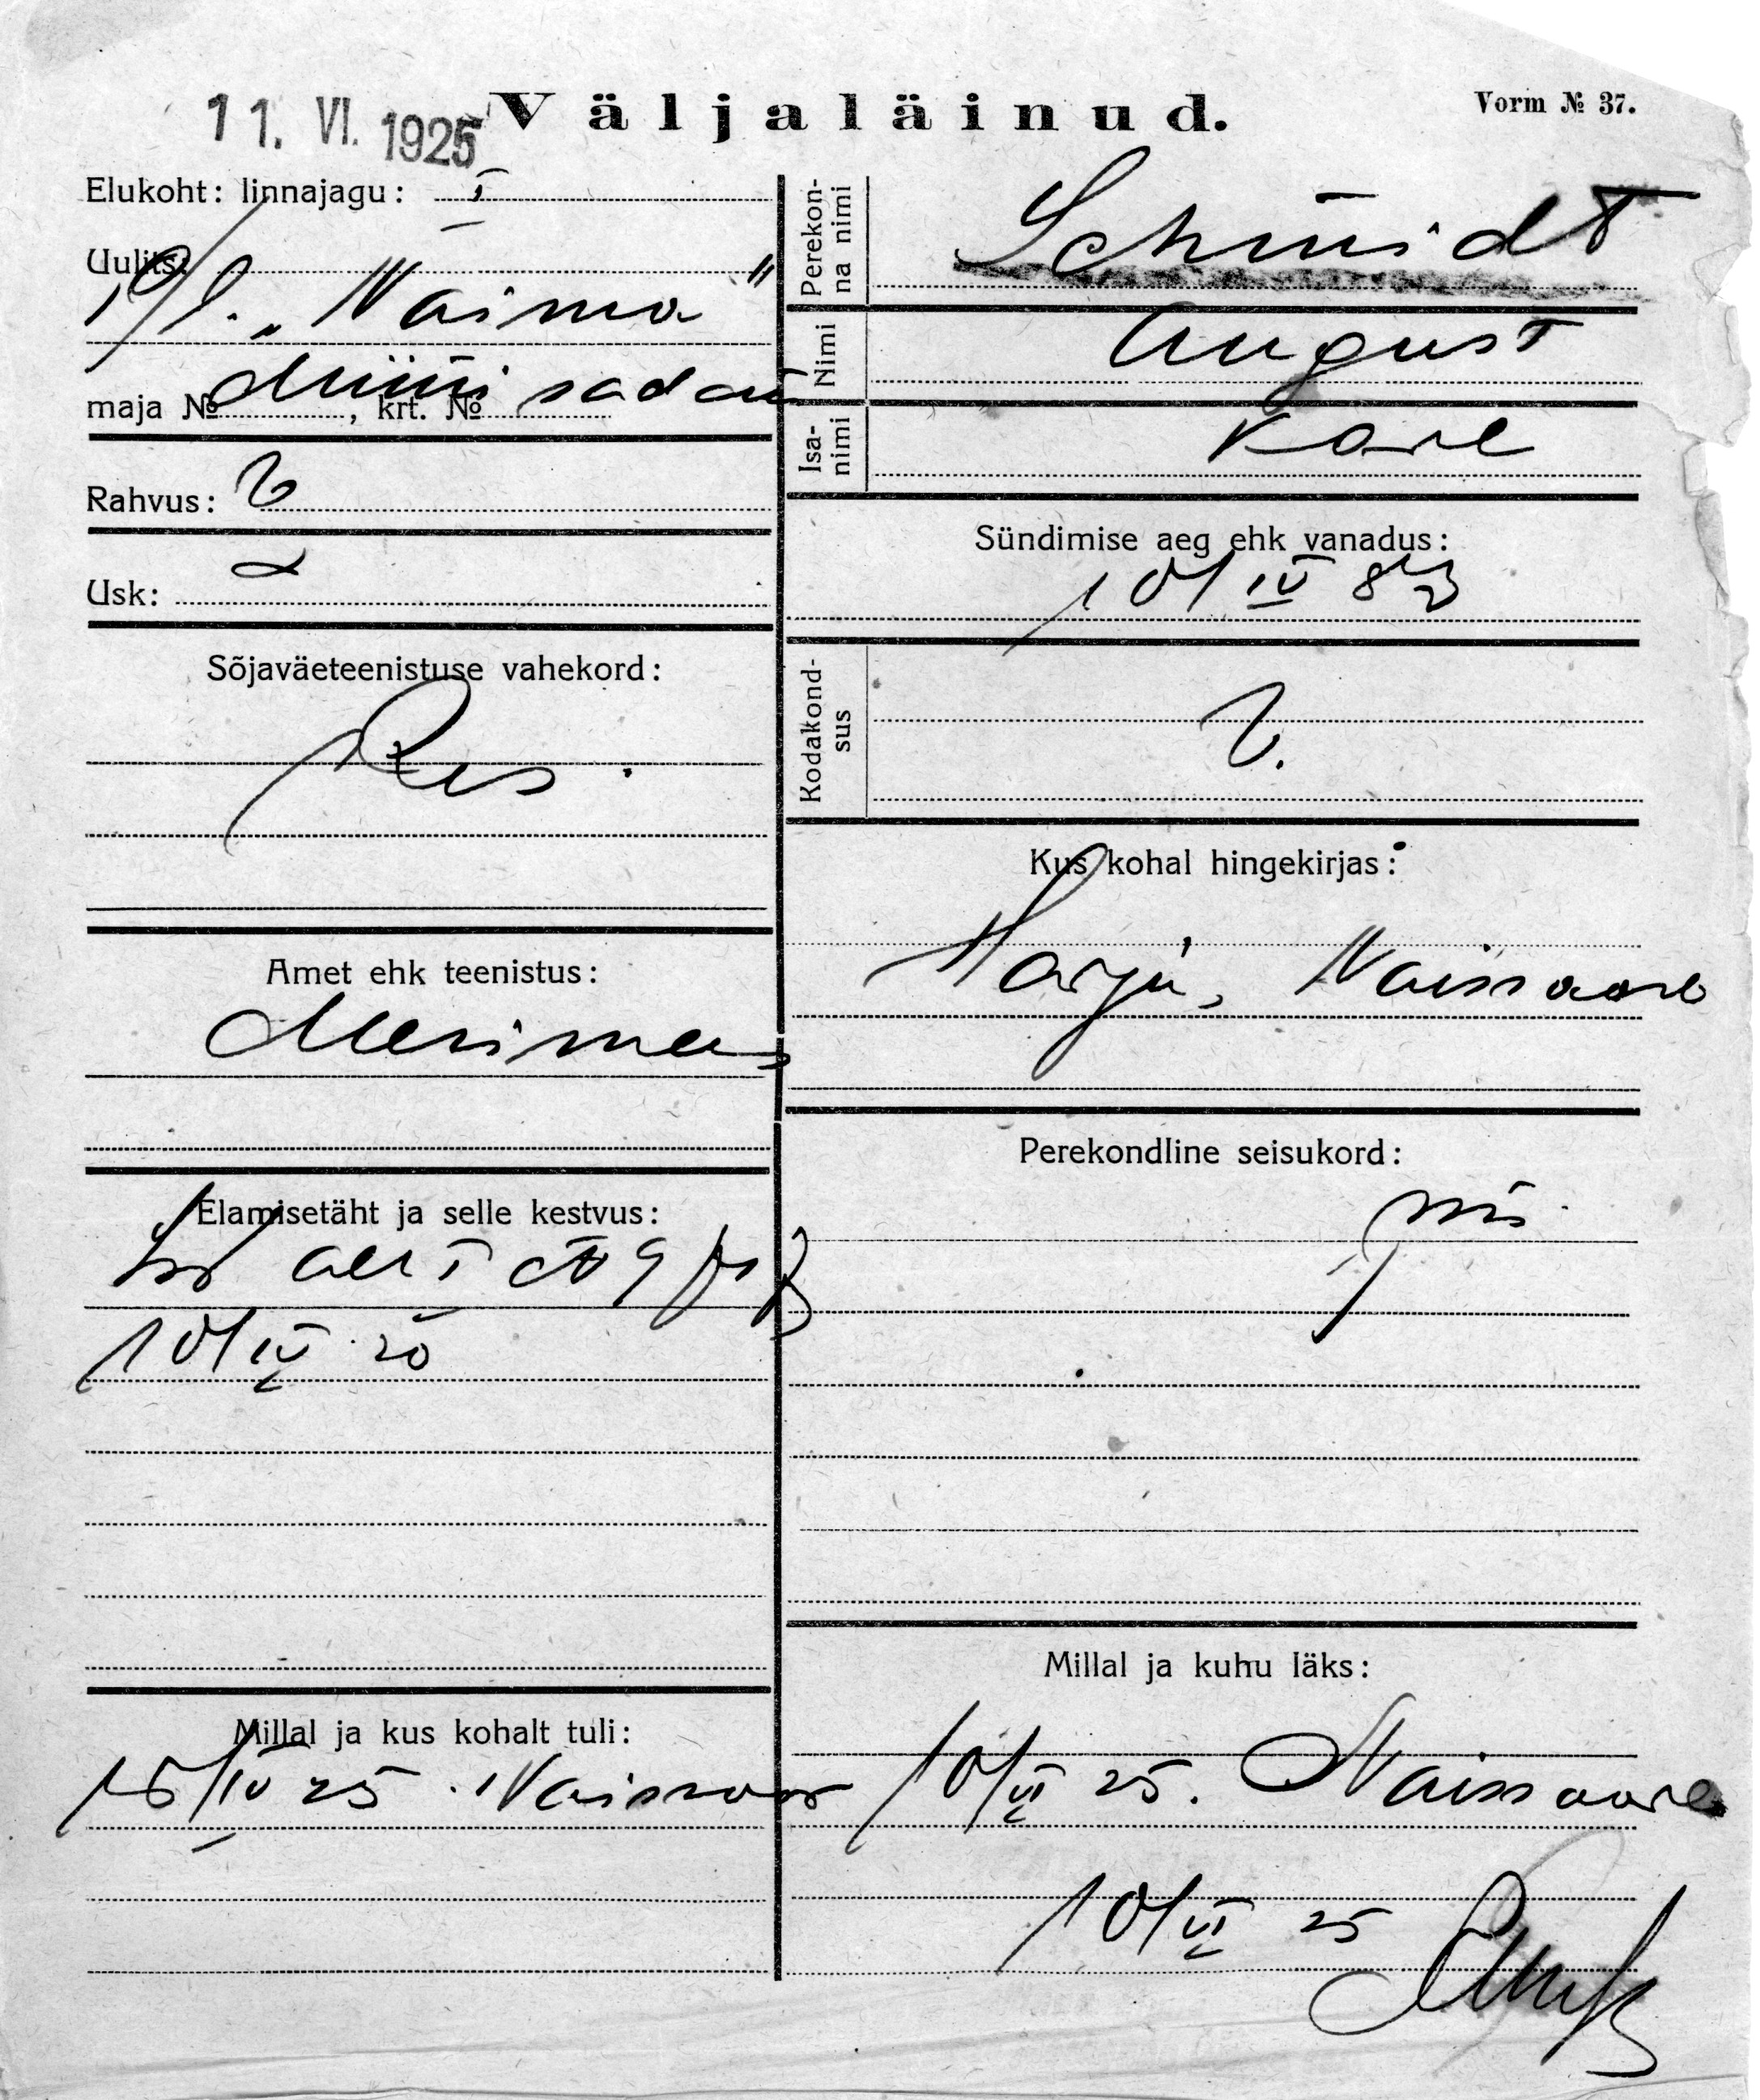 11. VI. 1925
Väljaläinud.
Vorm № 37.
Elukoht: linnajagu: I
Uulits:
P/l. „Naima"
maja № Miini sadam, krt. №
Rahvus: E
Usk: L
Sõjaväeteenistuse vahekord:
Res.
Amet ehk teenistus:
Merimees
Elamisetäht ja selle kestvus:
10/IV 20
Millal ja kus kohalt tuli:
15/IV 25. Naissaar
Perekonna nimi
Schmidt
Nimi
August
Isanimi
Karl
Sündimise aeg ehk vanadus:
10/IV 83
Kodakondsus
E.
Kus kohal hingekirjas:
Harju, Naissaare
Perekondline seisukord:
Millal ja kuhu läks:
10/VI 25. Naissaare
10/VI 25